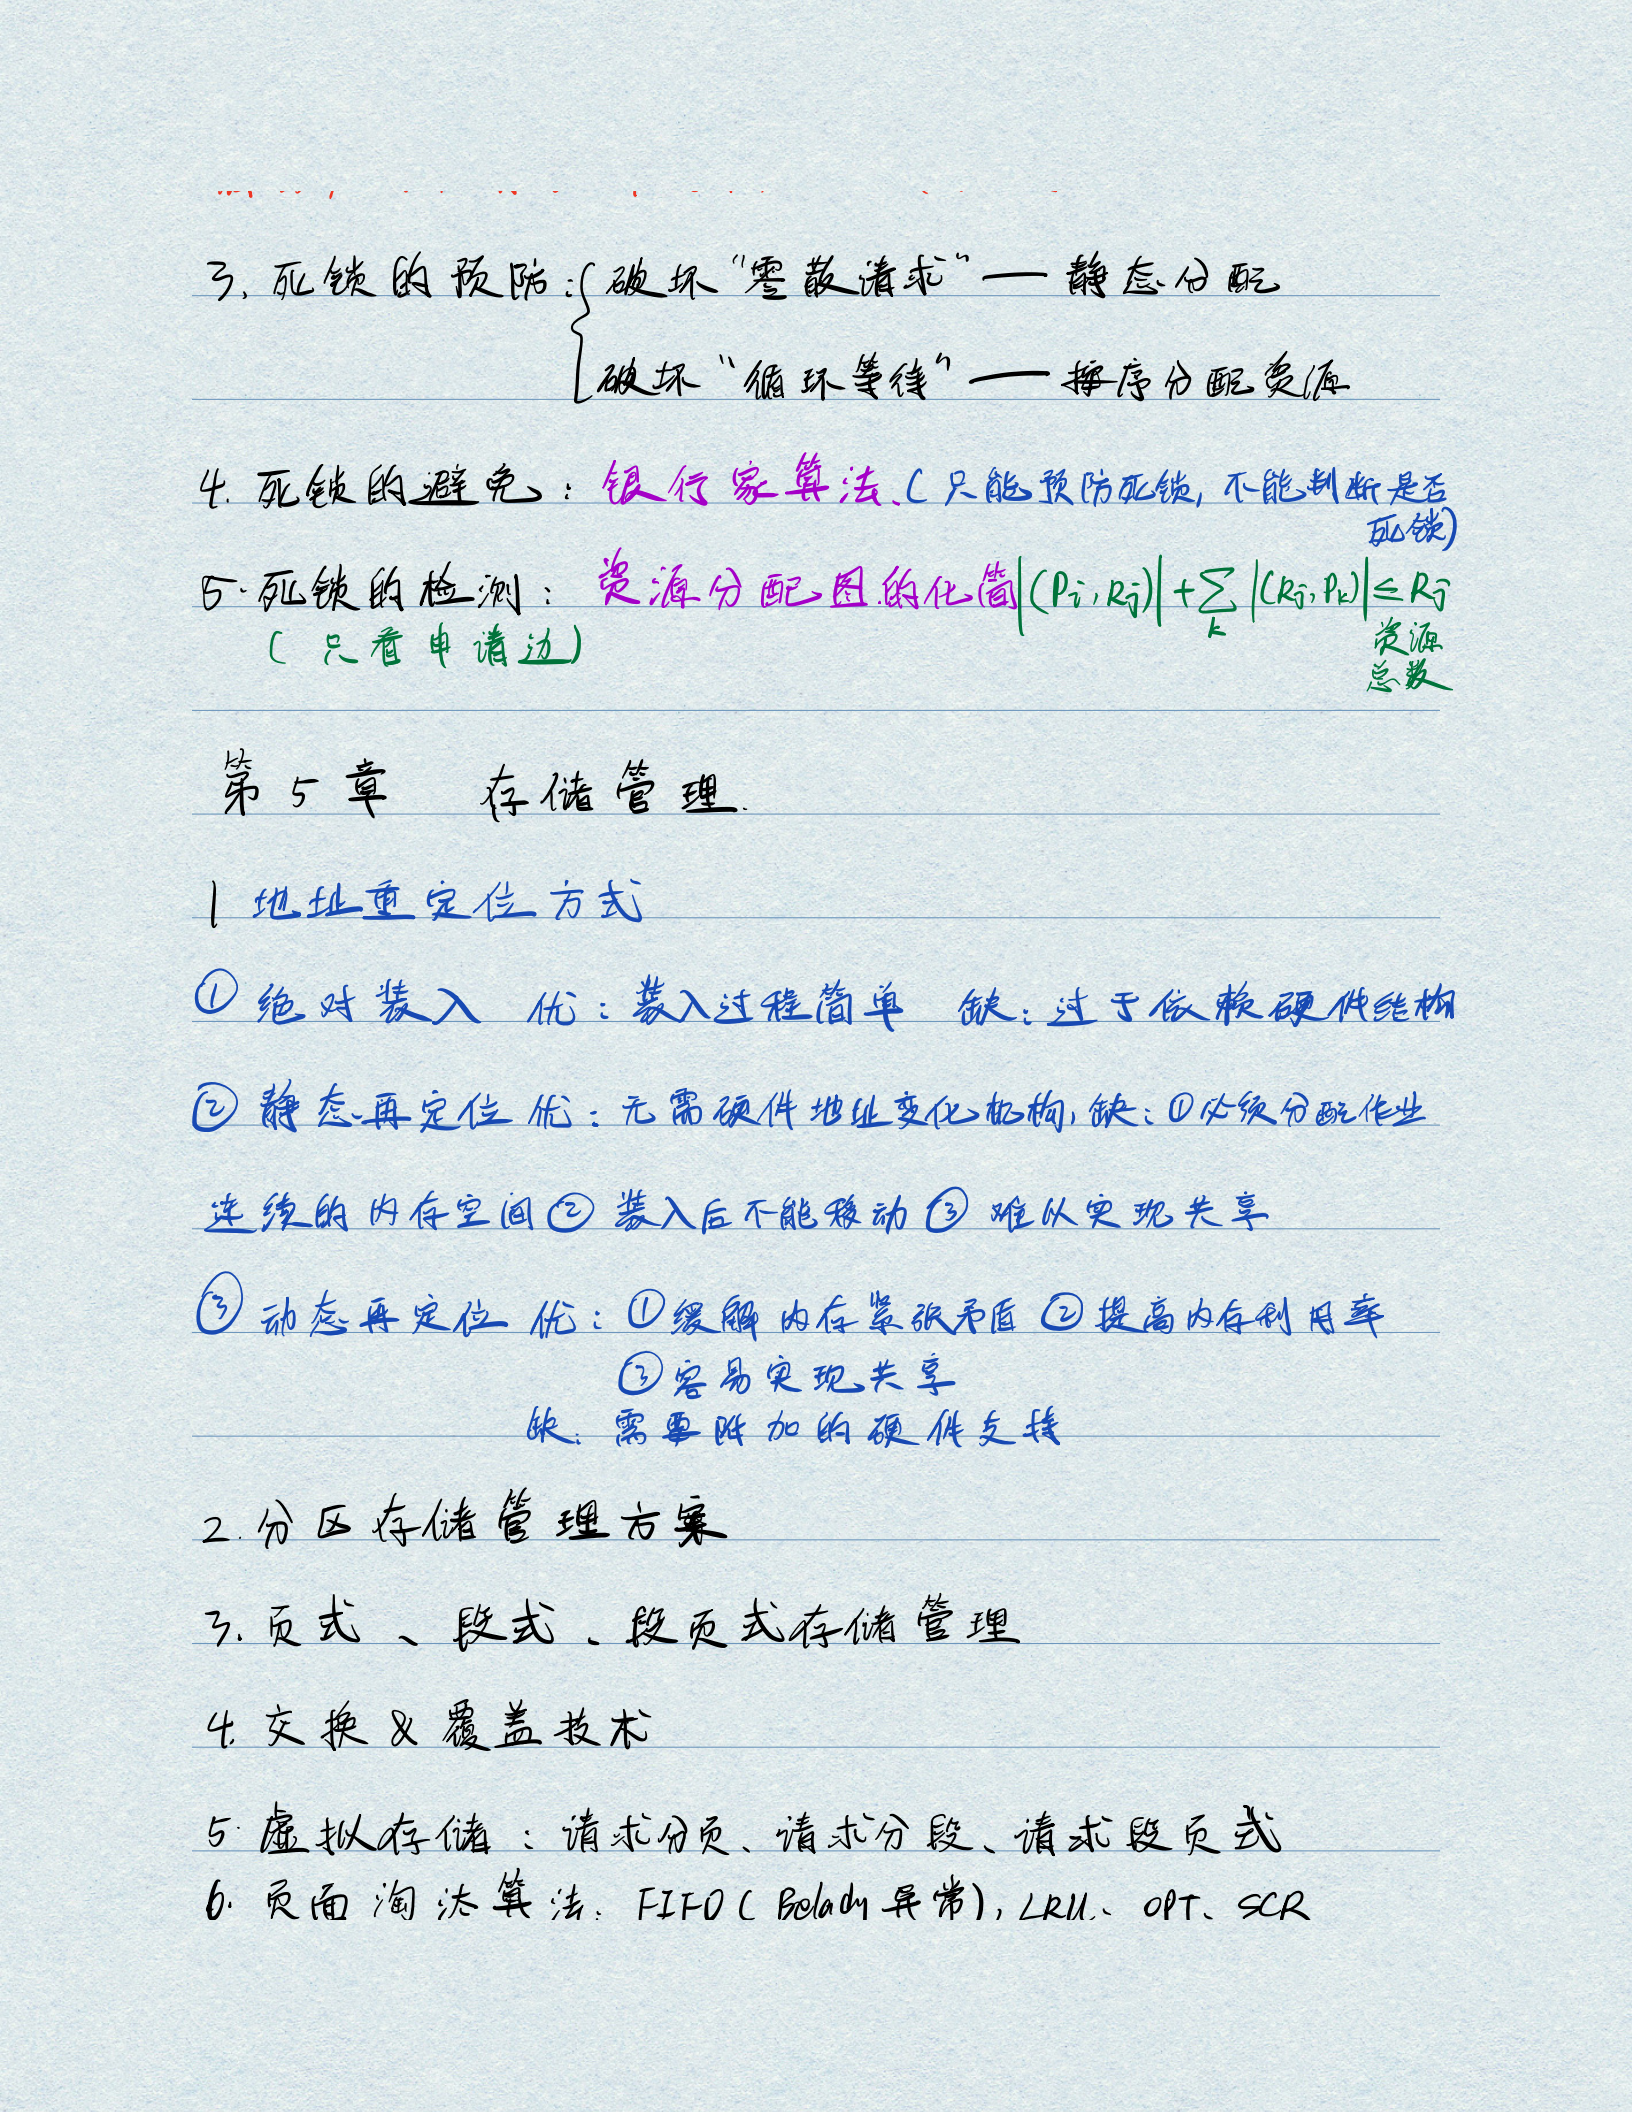 3. 死锁的预防:{破坏“零散请求”—— 静态分配
破坏“循环等待”—— 按序分配资源
4. 死锁的避免: 银行家算法、(只能预防死锁, 不能判断是否
死锁)
5. 死锁的检测: 资源分配图的化简 |(Pi, Rj)| + ∑k |(Rj, Pk)| ≤ Rj
(只看申请边) 资源
总数
第5章 存储管理.
1 地址重定位方式
① 绝对装入 优: 装入过程简单 缺: 过于依赖硬件结构
② 静态再定位 优: 无需硬件地址变化机构, 缺: ①必须分配作业
连续的内存空间 ② 装入后不能移动 ③ 难以实现共享
③ 动态再定位 优: ①缓解内存紧张矛盾 ②提高内存利用率
③容易实现共享
缺: 需要附加的硬件支持
2. 分区存储管理方案
3. 页式、段式、段页式存储管理
4. 交换 & 覆盖技术
5. 虚拟存储: 请求分页、请求分段、请求段页式
6. 页面淘汰算法: FIFO (Belady异常), LRU、OPT、SCR